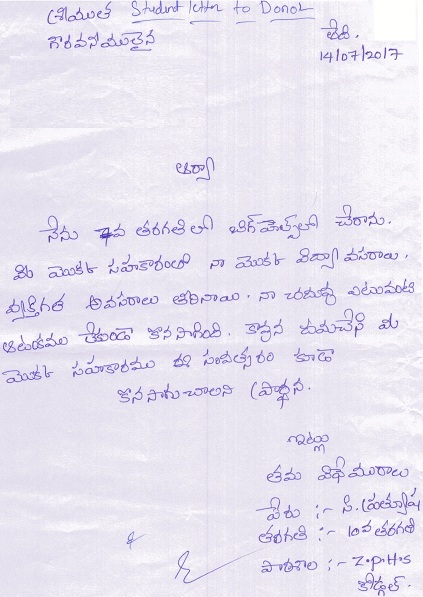 శ్రీయుత Student letter to Donor
గౌరవనీయులైన
తేది.
14/07/2017
ఆర్యా
నేను 7వ తరగతిలో బిగ్‌హెల్ప్‌లో చేరాను.
మీ యొక్క సహకారంతో నా యొక్క విద్యావసరాలు,
వ్యక్తిగత అవసరాలు తీరినాయి. నా చదువు ఎటువంటి
ఆటంకము లేకుండా కొనసాగింది. కావున దయచేసి మీ
యొక్క సహకారము ఈ సంవత్సరం కూడా
కొనసాగుచాలని ప్రార్థన.
ఇట్లు
తమ విధేయురాలు
పేరు :- సి. ప్రత్యూష
తరగతి :- 10వ తరగతి
పాఠశాల :- Z.P.H.S